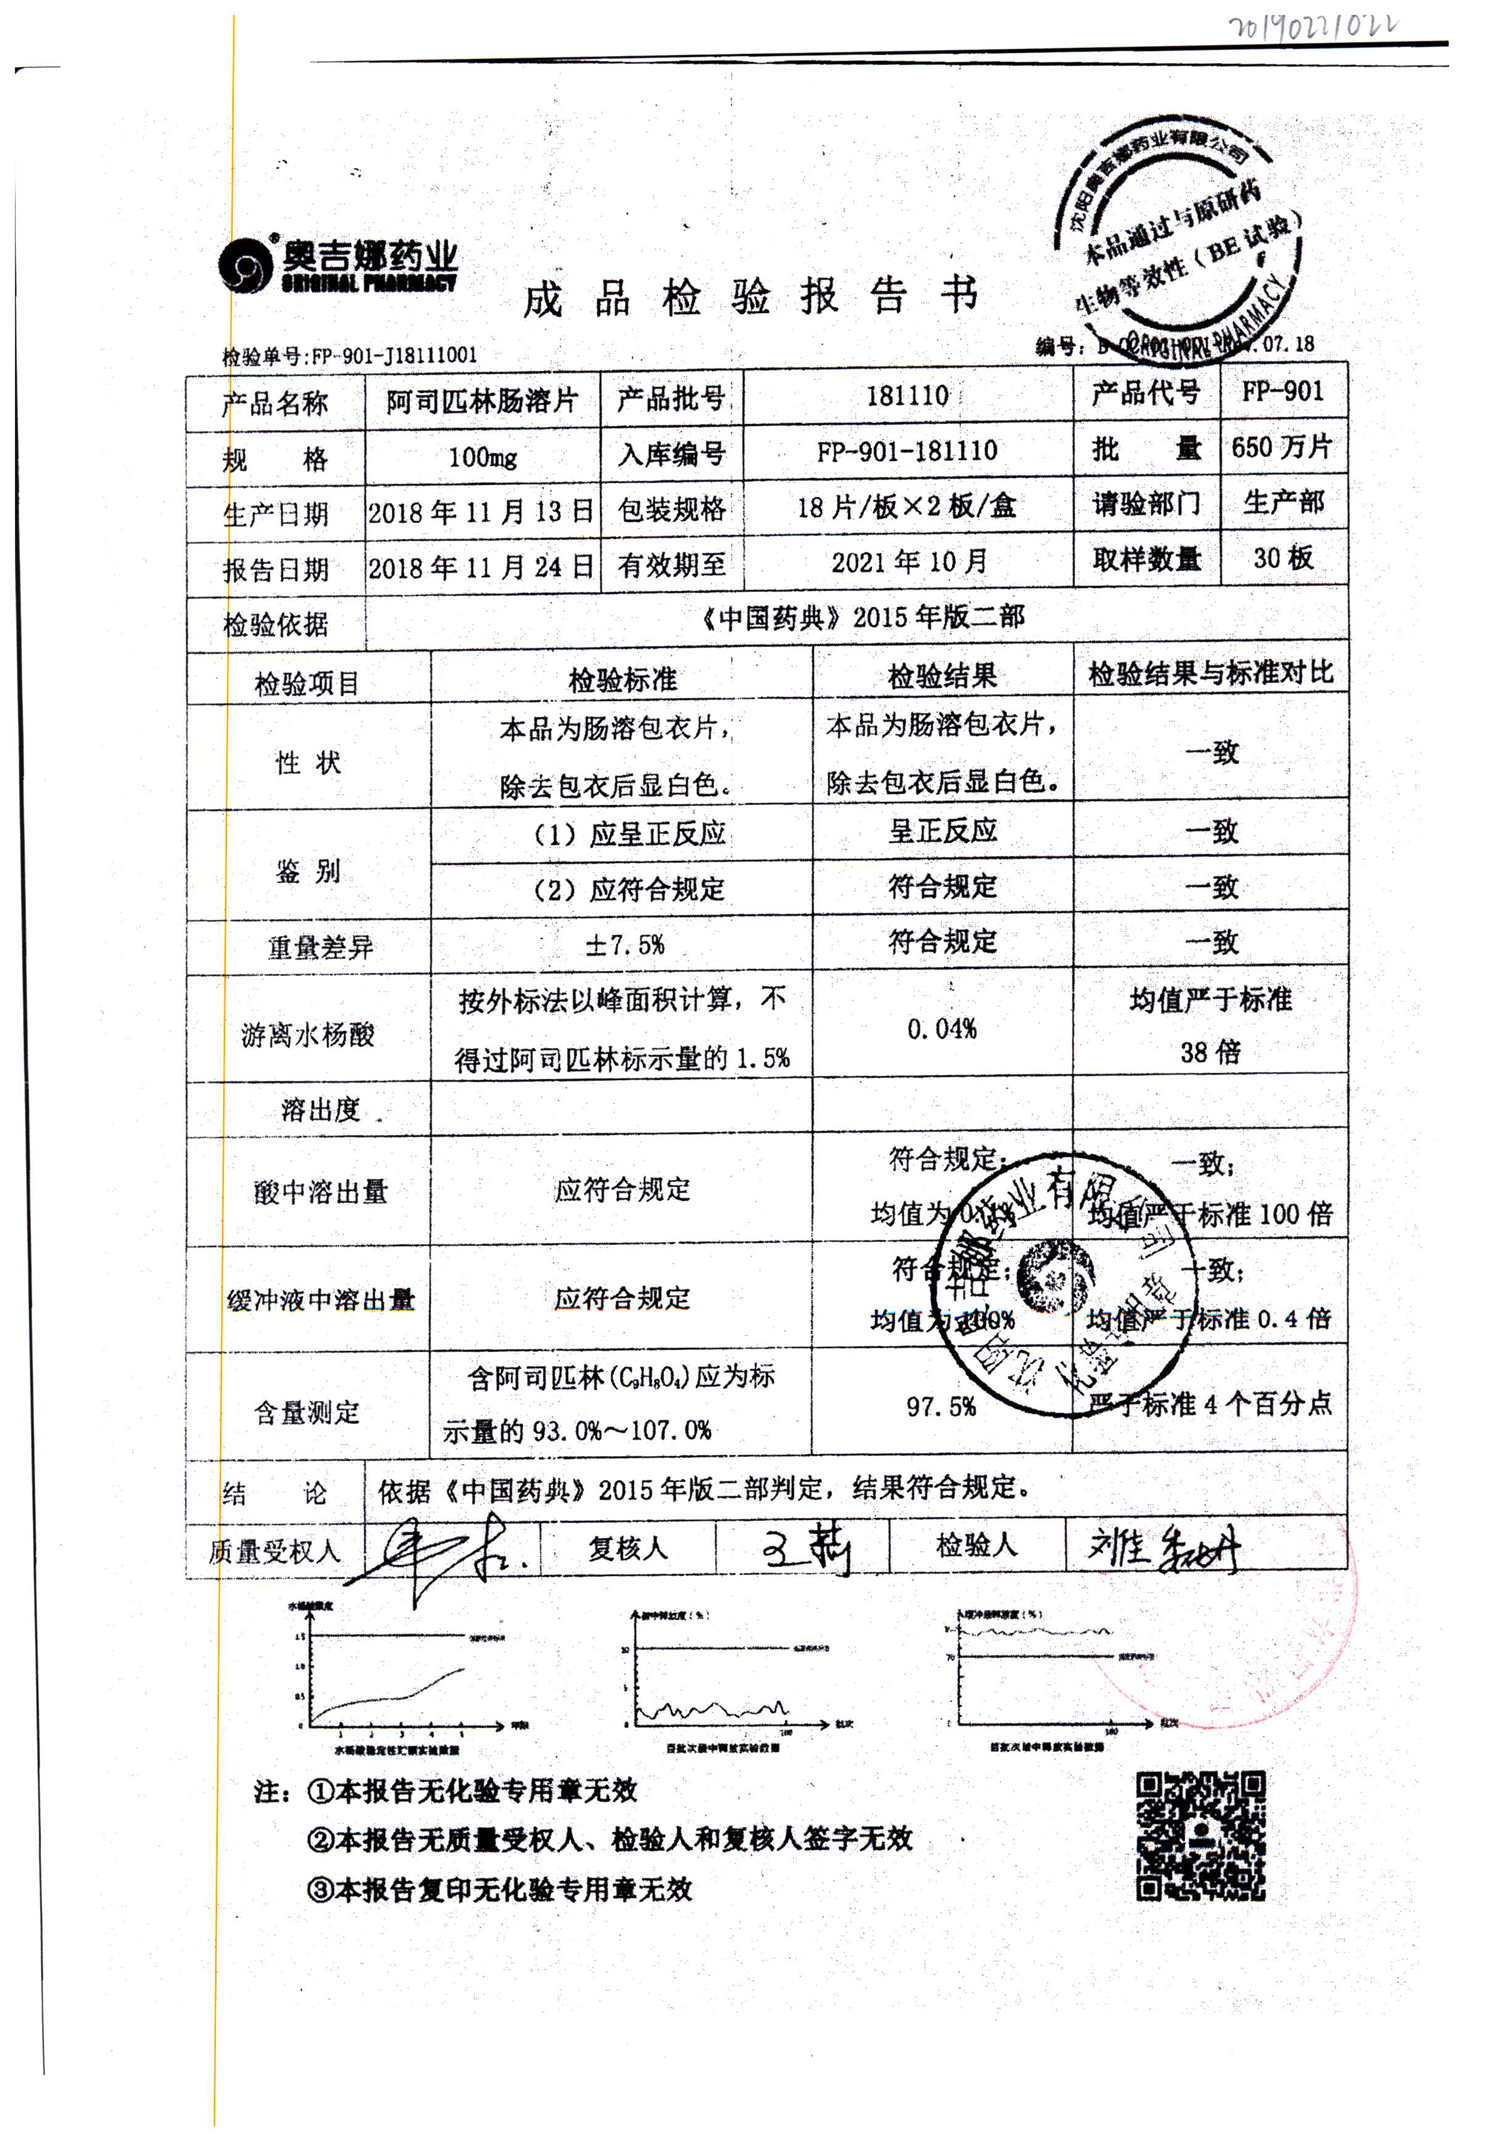 20190221022
沈阳奥吉娜药业有限公司
本品通过与原研药
生物等效性（BE试验）
ORIGINAL PHARMACY
奥吉娜药业
ORIGINAL PHARMACY
成品检验报告书
检验单号:FP-901-J18111001
编号: .07.18
产品名称 阿司匹林肠溶片 产品批号 181110 产品代号 FP-901
规 格 100mg 入库编号 FP-901-181110 批 量 650万片
生产日期 2018年11月13日 包装规格 18片/板×2板/盒 请验部门 生产部
报告日期 2018年11月24日 有效期至 2021年10月 取样数量 30板
检验依据 《中国药典》2015年版二部
检验项目 检验标准 检验结果 检验结果与标准对比
性 状 本品为肠溶包衣片， 本品为肠溶包衣片， 一致
除去包衣后显白色。 除去包衣后显白色。
鉴 别 （1）应呈正反应 呈正反应 一致
（2）应符合规定 符合规定 一致
重量差异 ±7.5% 符合规定 一致
游离水杨酸 按外标法以峰面积计算，不 0.04% 均值严于标准
得过阿司匹林标示量的1.5% 38倍
溶出度
酸中溶出量 应符合规定 符合规定； 一致；
均值为 均值严于标准100倍
缓冲液中溶出量 应符合规定 符合规定； 一致；
均值为100% 均值严于标准0.4倍
含量测定 含阿司匹林(C₉H₈O₄)应为标 97.5% 严于标准4个百分点
示量的93.0%～107.0%
结 论 依据《中国药典》2015年版二部判定，结果符合规定。
质量受权人 复核人 检验人 刘佳
水杨酸限度
1.5
1.0
0.5
0
1 2 3 4 5
水杨酸稳定性贮藏实验数据
酸中释放度（%）
10
5
0
100
批次
百批次酸中释放实验数据
缓冲液释放度（%）
70
100
批次
注：①本报告无化验专用章无效
②本报告无质量受权人、检验人和复核人签字无效
③本报告复印无化验专用章无效